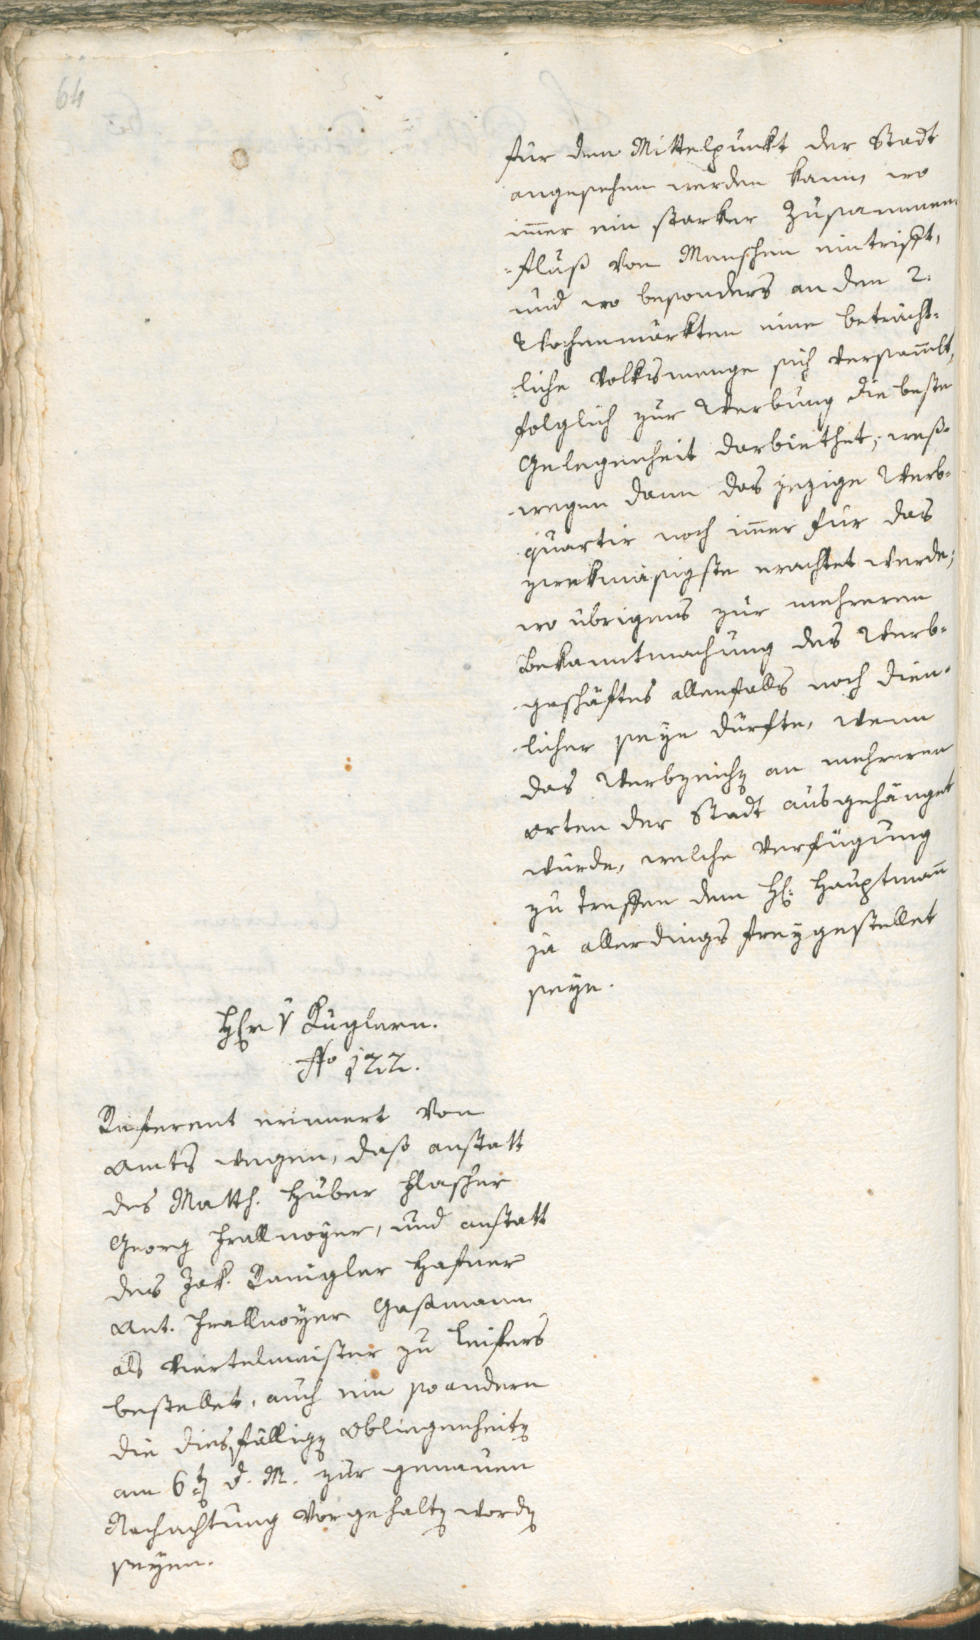 64
für den Mittelpunkt der Stadt
angesehen werden kann, wo
im̄er ein starker Zusammen¬
¬fluß von Menschen eintrift,
und wo besonders an den 2.
Wochenmärkten eine beträcht¬
liche Volksmenge sich versam̄lt,
folglich zur Werbung die beste
Gelegenheit darbiethet, weß¬
wegen dann das jezige Werb¬
quartir noch im̄er für das
zwekmäsigste erachtet werde;
wo übrigens zur mehreren
Bekanntmachung des Werb¬
geschäftes allenfalls noch dien¬
licher seyn dürfte, wenn
das Werbzeichen an mehreren
Orten der Stadt ausgehänget
würde, welche Verfügung
zu treffen dem H: Hauptman̄
ja allerdings freygestellet
seye.
Herr v Kuglern.
No 122.
Referent erinnert von
Amts wegen, daß anstatt
des Matth. Huber Flascher
Georg Frallnoyer, und anstatt
des Jak. Ramgler Hafner
Ant. Frallnoyer Gaßmann
als Viertelmeister zu Leifers
bestellet, auch ein so andern
die diesfälligen Obliegenheiten
am 6ten d. M. zur genauen
Nachachtung vorgehalten worden
seyen.